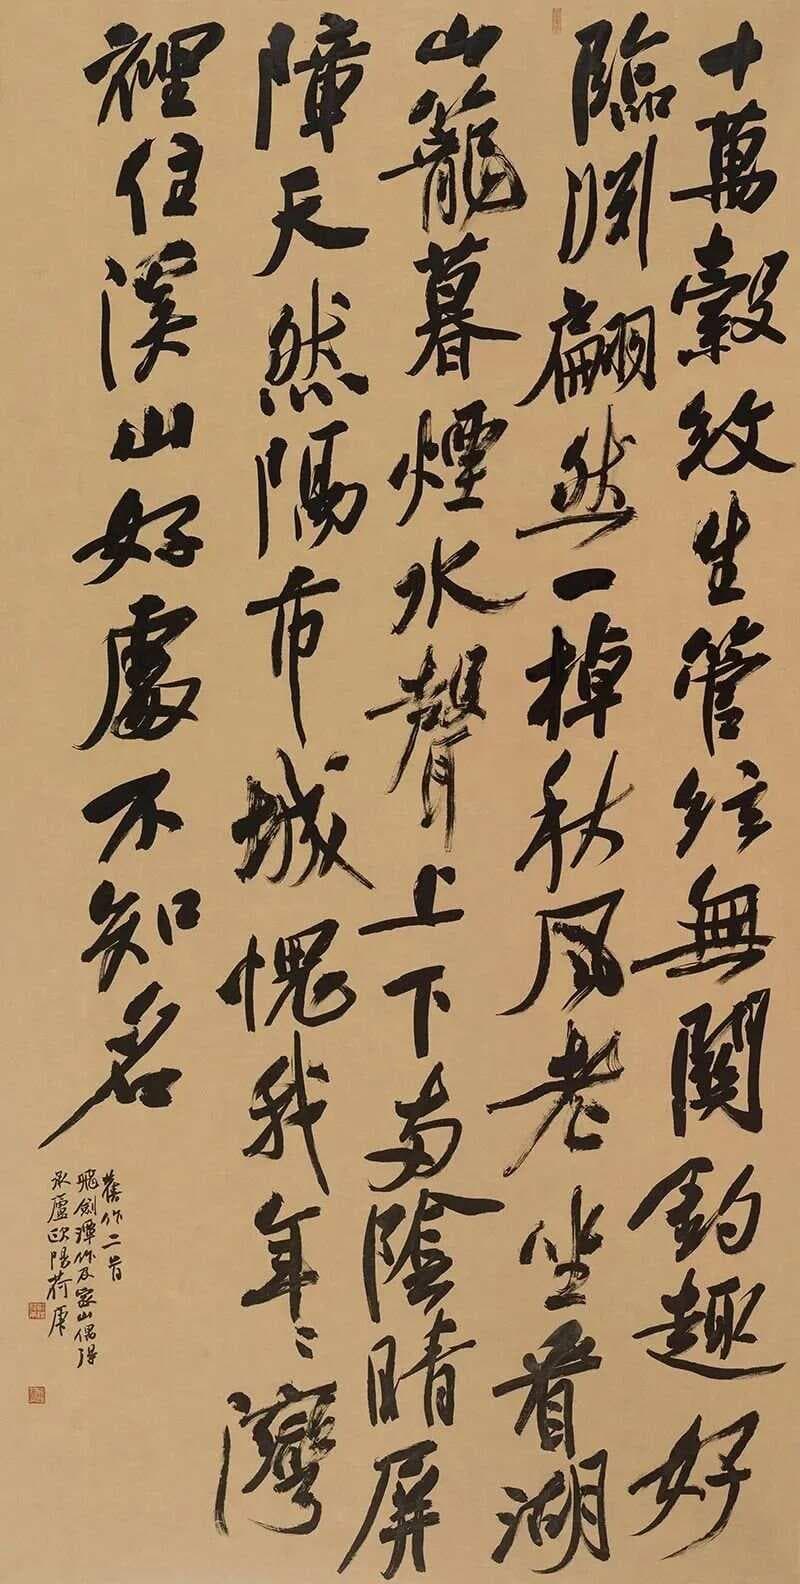 十萬縠紋生管絃無關釣趣好
臨淵翩然一棹秋風老坐看湖
山籠暮煙水聲上下兩陰晴屏
障天然隔市城愧我年〻灣
裡住溪山好處不知名
舊作二首
飛劍潭作及家山偶得
永廬歐陽荷庚